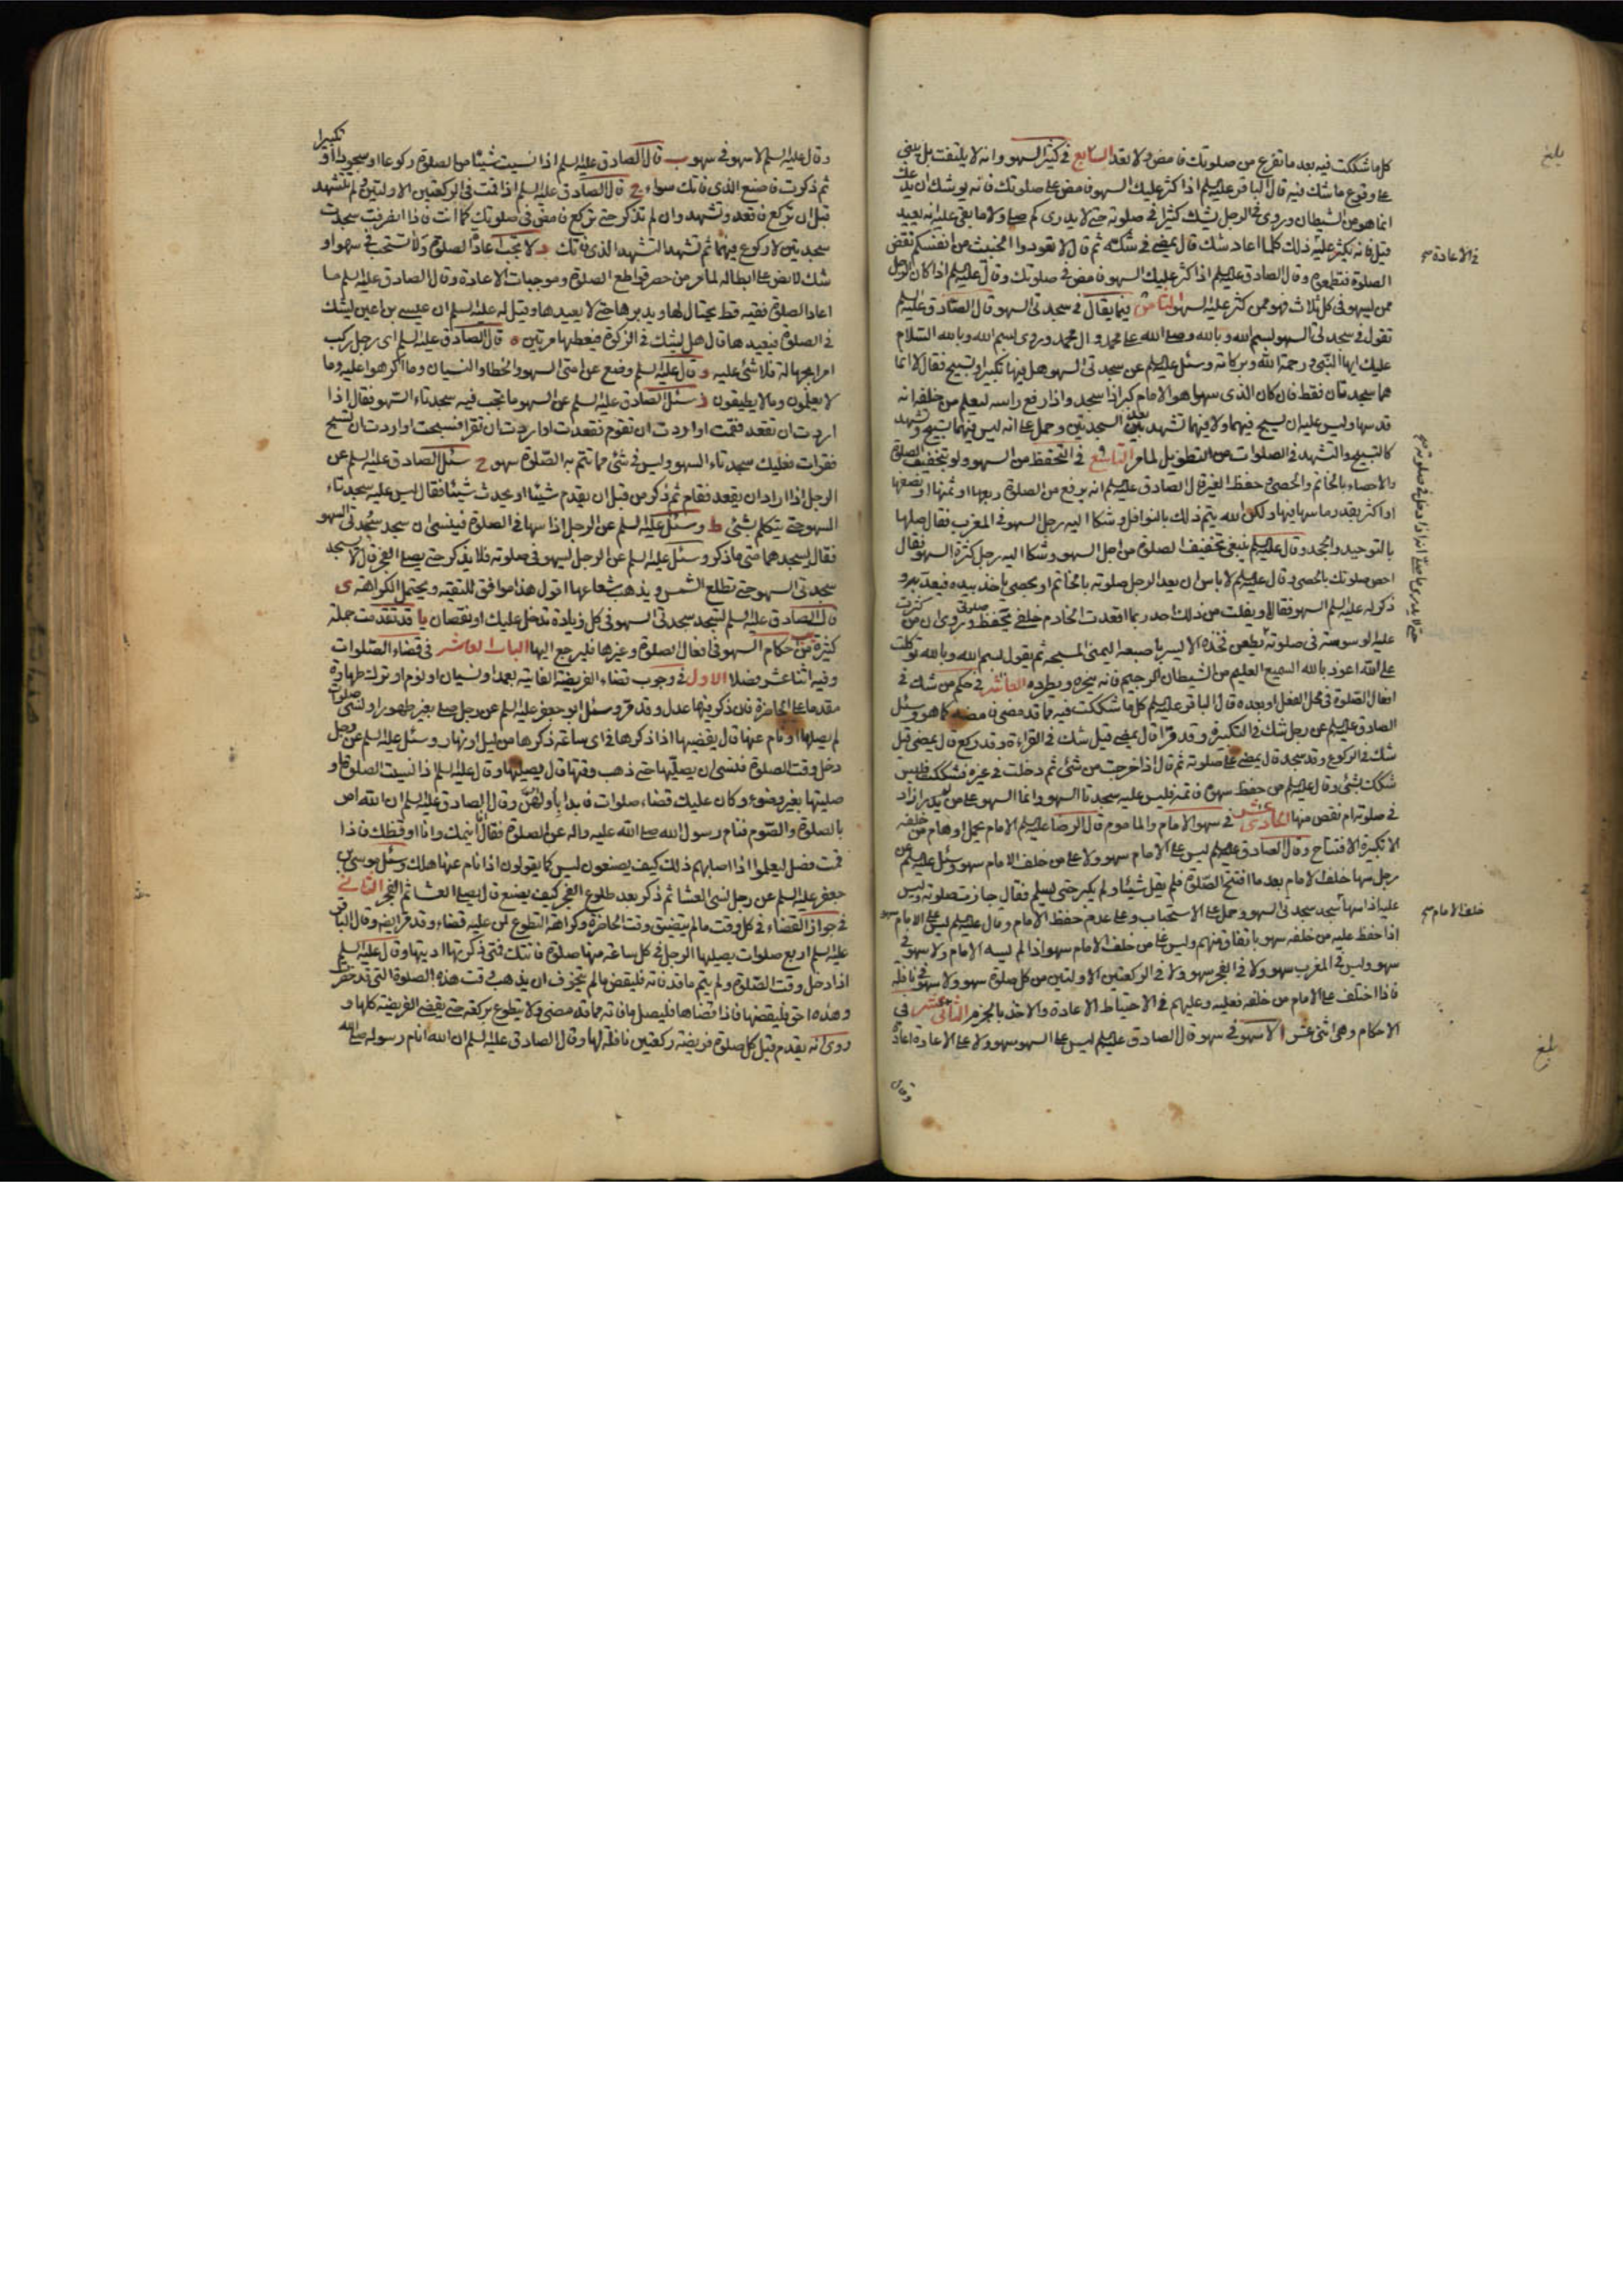 كل ما شككت فيه بعد ما تفرغ من صلوتك فامض ولا تعد السابع في كثير السهو وانه لا يلتفت بل يبني
على وقوع ما شك فيه قال الباقر عليه السلم اذا كثر عليك السهو فامض على صلوتك فانه يوشك ان يدعك
انما هو من الشيطان وروي في الرجل يشك كثيرا في صلوته حتى لا يدري كم صلى ولا ما بقي عليه انه يعيد
قيل فانه يكثر عليه ذلك كلما اعاد شك قال يمضي في شكه ثم قال لا تعودوا الخبيث من انفسكم نقض
الصلوة فتطمعوه وقال الصادق عليه السلم اذا كثر عليك السهو فامض في صلوتك وقال عليه السلم اذا كان الرجل
ممن يسهو في كل ثلاث فهو ممن كثر عليه السهو الثامن فيما يقال في سجدتي السهو قال الصادق عليه السلم
تقول في سجدتي السهو بسم الله وبالله وصلى الله على محمد وال محمد وروي بسم الله وبالله السلام
عليك ايها النبي ورحمة الله وبركاته وسئل عليه السلم عن سجدتي السهو هل فيهما تكبير او تسبيح فقال لا انما
هما سجدتان فقط فان كان الذي سها هو الامام كبر اذا سجد واذا رفع راسه ليعلم من خلفه انه
قد سها وليس عليه ان يسبح فيهما ولا فيهما تشهد بعد السجدتين وحمل على انه ليس فيهما تسبيح وتشهد
كالتسبيح والتشهد في الصلوات من التطويل لما مر التاسع في التحفظ من السهو ولو بتخفيف الصلوة
والاحصاء بالخاتم والحصى وحفظ الغير قال الصادق عليه السلم انه يرفع من الصلوة ربعها او ثمنها او نصفها
او اكثر بقدر ما سها فيها ولكن الله يتم ذلك بالنوافل وشكا اليه رجل السهو في المغرب فقال صلها
بالتوحيد والجحد وقال عليه السلم ينبغي تخفيف الصلوة من اجل السهو وشكا اليه رجل كثرة السهو فقال
احص صلوتك بالحصى وقال عليه السلم لا باس ان يعد الرجل صلوته بالخاتم او بحصى ياخذ بيده فيعد به و
ذكر له عليه السلم السهو فقال ويفلت من ذلك احد ربما اقعدت الخادم خلفي يحفظ صلوتي وروي ان من كثرت
عليه الوسوسة في صلوته يطعن فخذه الايسر باصبعه اليمنى المسبحة ثم يقول بسم الله وبالله توكلت
على الله اعوذ بالله السميع العليم من الشيطان الرجيم فانه يزجره ويطرده العاشر في حكم من شك في
افعال الصلوة في محل الفعل او بعده قال الباقر عليه السلم كل ما شككت فيه مما قد مضى فامضه كما هو وسئل
الصادق عليه السلم عن رجل شك في التكبيرة وقد قرأ قال يمضي قيل شك في القراءة وقد ركع قال يمضي قيل
شك في الركوع وقد سجد قال يمضي على صلوته ثم قال اذا خرجت من شئ ثم دخلت في غيره فشكك فليس
شكك بشئ وقال عليه السلم من حفظ سهوه فاتمه فليس عليه سجدتا السهو وانما السهو على من لم يدر ازاد
في صلوته ام نقص منها الحادي عشر في سهو الامام والماموم قال الرضا عليه السلم الامام يحمل اوهام من خلفه
الا تكبيرة الافتتاح وقال الصادق عليه السلم ليس على الامام سهو ولا على من خلف الامام سهو وسئل عليه السلم عن
رجل سها خلف الامام بعد ما افتتح الصلوة فلم يقل شيئا ولم يكبر حتى يسلم فقال جازت صلوته وليس
عليه اذا سها سجد سجدتي السهو وحمل على الاستحباب وعلى عدم حفظ الامام وقال عليه السلم ليس على الامام سهو
اذا حفظ عليه من خلفه سهوه باتفاق منهم وليس على من خلف الامام سهو اذا لم يسه الامام ولا سهو في
سهو وليس في المغرب سهو ولا في الفجر سهو ولا في الركعتين الاولتين من كل صلوة سهو ولا سهو في نافلة
فاذا اختلف على الامام من خلفه فعليه وعليهم في الاحتياط الاعادة والاخذ بالجزم الثاني عشر في
الاحكام وهي اثنى عشر ا لا سهو في سهو قال الصادق عليه السلم ليس على السهو سهو ولا على الاعادة اعادة
وقال
بلغ
في الاعادة
خلف الامام
بلغ
وقال عليه السلم لا سهو في سهو ب قال الصادق عليه السلم اذا نسيت شيئا من الصلوة ركوعا او سجودا او تكبيرا
ثم ذكرت فاصنع الذي فاتك سواء ج قال الصادق عليه السلم اذا قمت في الركعتين الاولتين ولم تتشهد
قبل ان تركع فاقعد وتشهد وان لم تذكر حتى تركع فامض في صلوتك كما انت فاذا انصرفت سجدت
سجدتين لا ركوع فيهما ثم تشهد التشهد الذي فاتك د لا تجب اعادة الصلوة ولا تستحب في سهو او
شك لا نص على ابطاله لما مر من حصر قواطع الصلوة وموجبات الاعادة وقال الصادق عليه السلم ما
اعاد الصلوة فقيه قط يحتال لها ويدبرها حتى لا يعيدها وقيل له عليه السلم ان عيسى بن اعين يشك
في الصلوة فيعيدها قال هل يشك في الزكوة فيعطيها مرتين ه قال الصادق عليه السلم اي رجل ركب
امرا بجهالة فلا شئ عليه و قال عليه السلم وضع عن امتي السهو والخطا والنسيان وما اكرهوا عليه وما
لا يعلمون وما لا يطيقون ز سئل الصادق عليه السلم عن السهو ما تجب فيه سجدتاء السهو فقال اذا
اردت ان تقعد فقمت او اردت ان تقوم فقعدت او اردت ان تقرا فسبحت او اردت ان تسبح
فقرات فعليك سجدتاء السهو وليس في شئ مما تتم به الصلوة سهو ح سئل الصادق عليه السلم عن
الرجل اذا اراد ان يقعد فقام ثم ذكر من قبل ان يقدم شيئا او يحدث شيئا فقال ليس عليه سجدتاء
السهو حتى يتكلم بشئ ط وسئل عليه السلم عن الرجل اذا سها في الصلوة فينسى ان يسجد سجدتي السهو
فقال يسجدهما متى ما ذكر وسئل عليه السلم عن الرجل يسهو في صلوته فلا يذكر حتى يصلي الفجر قال لا يسجد
سجدتي السهو حتى تطلع الشمس ويذهب شعاعها اقول هذا موافق للتقيه ويحتمل الكراهة ى
قال الصادق عليه السلم تسجد سجدتي السهو في كل زيادة تدخل عليك او نقصان يا قد تقدمت جملة
كثيرة من احكام السهو في افعال الصلوة وغيرها فليرجع اليها الباب العاشر في قضاء الصلوات
وفيه اثنا عشر فصلا الاول في وجوب قضاء الفريضة الفايتة بعمد او نسيان او نوم او ترك طهارة
مقدما على الحاضرة فان ذكر فيها عدل وقد مر وسئل ابو جعفر عليه السلم عن رجل صلى بغير طهور او نسي صلوات
لم يصلها او نام عنها قال يقضيها اذا ذكرها في اي ساعة ذكرها من ليل او نهار وسئل عليه السلم عن رجل
دخل وقت الصلوة فنسى ان يصليها حتى ذهب وقتها قال يصليها وقال عليه السلم اذا نسيت الصلوة او
صليتها بغير وضوء وكان عليك قضاء صلوات فابدا باولهن وقال الصادق عليه السلم ان الله امر
بالصلوة والصوم فنام رسول الله صلى الله عليه واله عن الصلوة فقال انا انيمك وانا اوقظك فاذا
قمت فصل ليعلموا اذا اصابهم ذلك كيف يصنعون ليس كما يقولون اذا نام عنها هلك وسئل موسى بن
جعفر عليه السلم عن رجل نسي العشا ثم ذكر بعد طلوع الفجر كيف يصنع قال يصلي العشا ثم الفجر الثاني
في جواز القضاء في كل وقت ما لم يتضيق وقت الحاضرة وكراهة التطوع لمن عليه قضاء وقد مر ايضه وقال الباقر
عليه السلم اربع صلوات يصليها الرجل في كل ساعة منها صلوة فاتتك فمتى ذكرتها اديتها وقال عليه السلم
اذا دخل وقت الصلوة ولم يتم ما قد فاته فليقض ما لم يتخوف ان يذهب وقت هذه الصلوة التي قد حضرت
وهذه احق فليقضها فاذا قضاها فليصل ما فاته مما قد مضى ولا يتطوع بركعة حتى يقضي الفريضة كلها و
روي انه يقدم قبل كل صلوة فريضة ركعتين نافلة لها وقال الصادق عليه السلم ان الله انام رسوله صلى الله